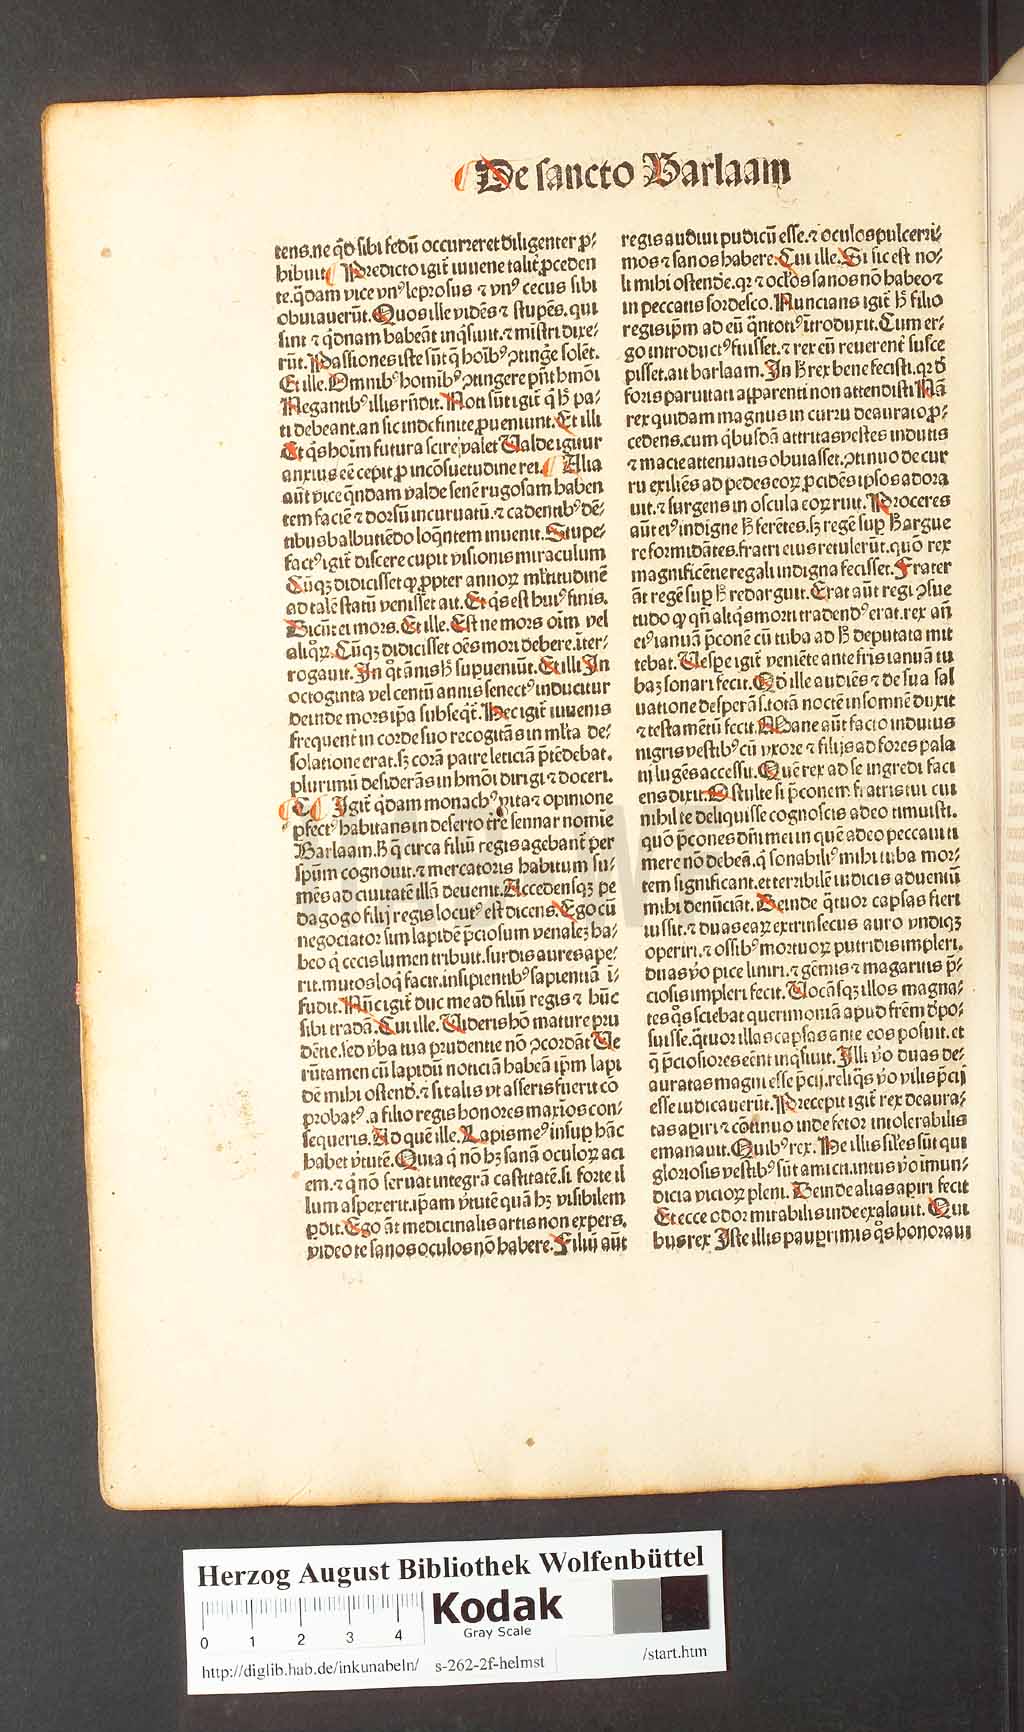 De sancto Barlaam
tens.ne qd̄ sibi fedū occurreret diligenter ꝓ⸗
hibuit Predicto igit᷑ iuuene taliť ꝓceden
te.q̄dam vice vnꝰ leprosus ⁊ vnꝰ cecus sibi
obuiauerūt.Quos ille vidēs ⁊ stupēs.qui
sint ⁊ q̄dnam habeāt inq̄siuit.⁊ mīstri dixe⸗
rūt.Passiones iste sūt q̄ hoībꝰ ꝯtinge solēt.
Et ille.Omnibꝰ homībꝰ ꝯtingere pn̄t hm̄oi
Negantibꝰ illis rn̄dit.Noti sūt igit᷑ q̄ h̄ pa⸗
ti debeant.an sic indefinite ꝓueniunt.Et illi
Et q̄s hoīm futura scire valet Valde igitur
anxius eē cepit ꝓ incōsuetudine rei. Alia
aūt vice q̄ndam valde senē rugosam haben
tem faciē ⁊ dorsū incuruatū.⁊ cadentibꝰ dē⸗
tibus balbutiēdo loq̄ntem inuenit.Stupe⸗
factꝰ igit᷑ discere cupit visionis miraculum
Cūqꝫ didicisset ꝙ ꝓpter annoꝝ ml̓titudinē
ad talē statū venisset ait.Et q̄s est huiꝰ finis.
Dicūt ei mors.Et ille.Est ne mors oīm vel
aliqͦꝝ.Cūqꝫ didicisset oēs mori debere.īter⸗
rogauit.In qͦt ānis h̄ supueniūt.Et illi In
octoginta vel centū annis senectꝰ inducitur
deinde mors ipa subseqt᷑.Hec igit᷑ iuuenis
frequent̓ in corde suo recogitās in ml̓ta de⸗
solatione erat.sꝫ corā patre leticiā p̄tēdebat.
plurimū desiderās in hm̄oi dirigi ⁊ doceri.
Igit᷑ q̄dam monachꝰ vita ⁊ opinione
ꝑfectꝰ habitans in deserto t̓re sennar nomie
Barlaam.h̄ q̄ circa filiū regis agebant᷑ per
spūm cognouit.⁊ mercatoris habitum su⸗
mēs ad ciuitatē illā deuenit.Accedensqꝫ pe
dagogo filij regis locutꝰ est dicens.Ego cū
negociator sim lapidē p̄ciosum venalē ha⸗
beo q̄ cecis lumen tribuit.surdis aures ape⸗
rit.mutos loq̄ facit.insipientibꝰ sapientiā ī⸗
fudit.Nūc igit᷑ duc me ad filiū regis ⁊ hūc
sibi tradā.Cui ille.Videris hō mature pru
dētie.sed v̓ba tua prudentie nō ꝯcordāt Ve
rūtamen cū lapidū noticiā habeā ipm̄ lapi
dē mihi ostend̓.⁊ si talis vt asseris fuerit co
probatꝰ.a filio regis honores maxīos con⸗
sequeris.Ad quē ille.Lapis meꝰ insup hāc
habet v̓tutē.Quia q̄ nō hꝫ sanā oculoꝝ aci
em.⁊ q̄ nō seruat integrā castitatē.si forte il
lum aspexerit.ipam v̓tutē quā hꝫ visibilem
ꝑdit.Ego āt medicinalis artis non expers.
video te sanos oculos nō habere.Filiū aūt
regis audiui pudicū esse.⁊ oculos pulcerri⸗
mos ⁊ sanos habere.Cui ille.Si sic est no⸗
li mihi ostende.qꝛ ⁊ oc̓los sanos nō habeo ⁊
in peccatis sordesco.Nuncians igit᷑ h̄ filio
regis ipm̄ ad eū q̄ntotiꝰ ītroduxit.Cum er⸗
go introductꝰ fuisset.⁊ rex eū reuerent̓ susce
pisset.ait barlaam.In h̄ rex bene fecisti.qꝛ d̓
foris paruitati apparenti non attendisti Nā
rex quidam magnus in curru deaurato ꝓ⸗
cedens.cum q̄busdā attritas vestes indutis
⁊ macie attenuatis obuiasset.ꝯtinuo de cur
ru exiliēs ad pedes eoꝝ ꝓcidēs ipsos adora
uit.⁊ surgens in oscula eoꝝ ruit.Proceres
aūt eiꝰ indigne h̄ ferētes.sꝫ regē sup h̄ argue
re formidātes.fratri eius retulerūt.quō rex
magnificētie regali indigna fecisset.Frater
āt regē sup h̄ redarguit.Erat aūt regi ꝯsue
tudo ꝙ qn̄ aliq̄s morti tradendꝰ erat.rex an̄
eiꝰ ianuā p̄conē cū tuba ad h̄ deputata mit
tebat.Vespe igit᷑ veniēte ante fris ianuā tu
bā sonari fecit.Qd̓ ille audiēs ⁊ de sua sal
uatione desperās.totā noctē insomnē duxit
⁊ testamētū fecit.Mane aūt facto indutus
nigris vestibꝰ cū vxore ⁊ filijs ad fores pala
tij lugēs accessit.Quē rex ad se ingredi faci
ens dixit.O stulte si p̄conem fratris tui cui
nihil te deliquisse cognoscis adeo timuisti.
quō p̄cones dn̄i mei in quē adeo peccaui ti
mere nō debeā.q̄ sonabiliꝰ mihi tuba mor⸗
tem significant.et terribilē iudicis aduentū
mihi denūciāt.Deinde q̄tuor capsas fieri
iussit.⁊ duas eaꝝ extrinsecus auro vndiqꝫ
operiri.⁊ ossibꝰ mortuoꝝ putridis impleri.
duas v̓o pice liniri.⁊ gēmis ⁊ margaritis p̄⸗
ciosis impleri fecit.Vocāsqꝫ illos magna⸗
tes q̄s sciebat querimoniā apud frēm d̓po⸗
suisse.q̄tuor illas capsas ante eos posuit.et
q̄ p̄ciosiores eēnt inq̄siuit.Illi v̓o duas de⸗
auratas magni esse p̄cij.reliq̄s v̓o vilis p̄cij
esse iudicauerūt.Precepit igit᷑ rex deaura⸗
tas apiri ⁊ cōtinuo inde fetor intolerabilis
emanauit.Quibꝰ rex.He illis sil̓es sūt qui
gloriosis vestibꝰ sūt amicti.intus v̓o īmun⸗
dicia vicioꝝ pleni.Deinde alias apiri fecit
Et ecce odor mirabilis inde exalauit.Qui
bus rex Iste illis paupimis q̄s honoraui
Herzog August Bibliothek Wolfenbüttel
0 1 2 3 4
Kodak
Gray Scale
http://diglib.hab.de/inkunabeln/ s-262-2f-helmst /start.htm